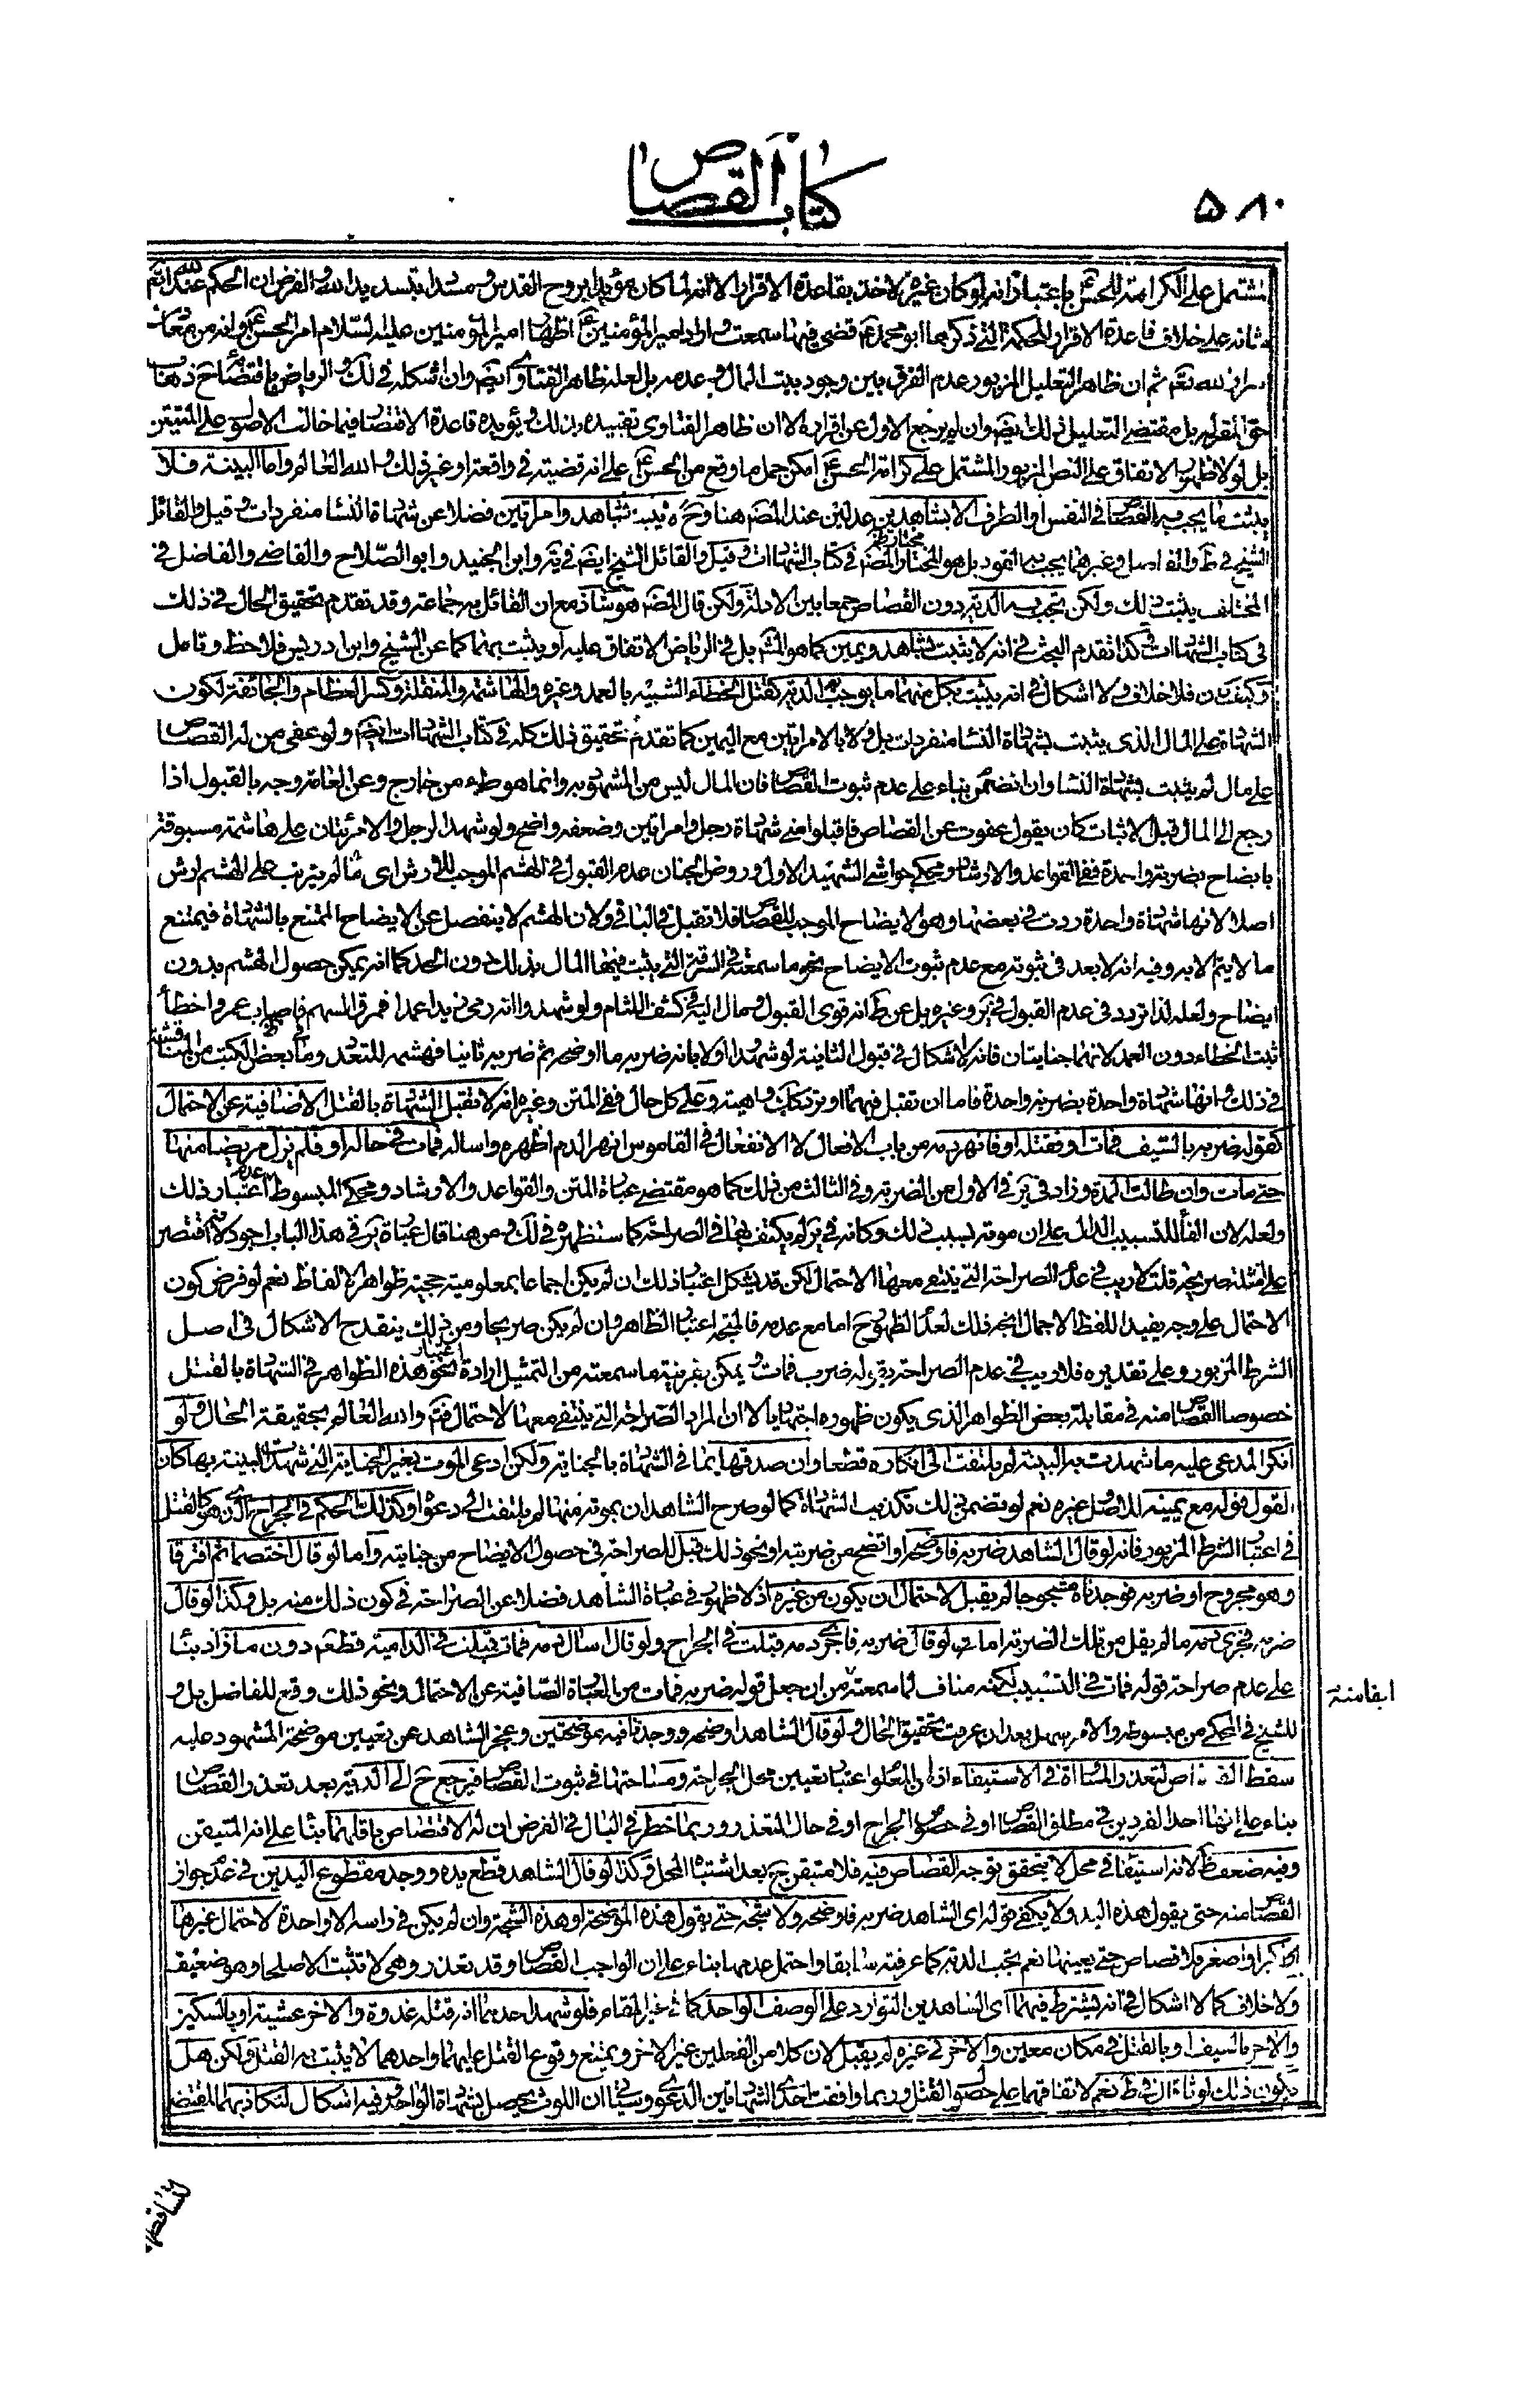 ۵۸۰
كتاب القصاص
مشتمل على الكرامة للحسن ع باعتبار انه لو كان غيره لاخذ بقاعدة الاقرار الا انه لما كان مؤيدا بروح القدس ومسددا بتسديد الله والفرض ان الحكم عند الله تعم
شانه على خلاف قاعدة الاقرار للحكمة التي ذكرها ابو محمد ع قضى فيها سمعت واراد امير المؤمنين ع اظهار امير المؤمنين عليه السلام امر الحسن ع وانه من معادن
اسرار الله تعم ثم ان ظاهر التعليل المزبور عدم الفرق بين وجود بيت المال وعدمه بل لعله ظاهر الفتاوى ايضم وان اشكله في لك والرياض باقتضائه ح ذهاب
حق المقر له بل مقتضى التعليل ذلك ايضم وان لم يرجع الاول عن اقراره الا ان ظاهر الفتاوى تقييده بذلك ويؤيده قاعدة الاقتصار فيما خالف الاصول على المتيقن
بل لولا ظهور الاتفاق على النص المزبور المشتمل على كرامة الحسن ع امكن حمل ما وقع من الحسن ع على انه قضية في واقعة او غير ذلك والله العالم واما البينة فلا
يثبت ما يجب به القصاص في النفس او الطرف الا بشاهدين عدلين عند المصم هنا وح ه يثبت بشاهد وامراتين فضلا عن شهادة النسا منفردات وقيل والقائل
الشيخ في ط والفاضل وغيرهما يجب به القود بل هو المختار المصم في كتاب الشهاات وقيل والقائل الشيخ ايضم في ية وابن الجنيد وابو الصلاح والقاضي والفاضل في
مختار ظ
المختلف يثبت ذلك ولكن تجب به الدية دون القصاص جمعا بين الادلة ولكن قال المصم هو شاذ مع ان القائل به جماعة وقد تقدم تحقيق الحال في ذلك
في كتاب الشهاات وكذا تقدم البحث في انه لا يثبت بشاهد ويمين كما هو المشم بل في الرياض الاتفاق عليه او يثبت بهما كما عن الشيخ وابن ادريس فلاحظ وتامل
وكيف كان فلا خلاف ولا اشكال في انه يثبت بكل منهما ما يوجب الدية كقتل الخطاء الشبيه بالعمد وغيره والهاشمة والمنقلة وكسر العظام والجائفة لكون
الشهادة على المال الذي يثبت بشهادة النسا منفردات بل ولا بالامراتين مع اليمين كما تقدم تحقيق ذلك كله في كتاب الشهاات ايضم ولو عفى من له القصاص
على مال لم يثبت بشهادة النسا وان انضممن بناء على عدم ثبوت القصاص فان المال ليس من المشهود به وانما هو طرء من خارج وعن العامة وجه بالقبول اذا
رجع الى المال قبل الاثبات كان يقول عفوت عن القصاص فاقبلوا مني شهادة رجل وامراتين وضعفه واضح ولو شهد الرجل والامرئتان على هاشمة مسبوقة
بايضاح بضربة واحدة ففي القواعد والارشاد ومحكي حواشي الشهيد الاول وروض الجنان عدم القبول في الهشم الموجب للارش اى ما لم يترتب على الهشم ارش
اصلا لانها شهادة واحدة ردت في بعضها وهو الايضاح الموجب للقصاص فلا تقبل في الباقي ولان الهشم لا ينفصل عن الايضاح الممتنع بالشهادة فيمتنع
ما لا يتم الا به وفيه انه لا بعد في ثبوته مع عدم ثبوت الايضاح نحو ما سمعته في السرقة التي يثبت فيها المال بذلك دون الحد كما انه يمكن حصول الهشم بدون
ايضاح ولعله لذا تردد في عدم القبول في ير وغيره بل عن ط انه قوى القبول ومال اليه في كشف اللثام ولو شهدوا انه رمى زيدا عمدا فمرق السهم فاصاب عمروا خطأ
ثبت الخطاء دون العمد لانهما جنايتان فانه لا اشكال في قبول الثانية لو شهدا اولا بانه ضربه ما اوضحه ثم ضربه ثانيا فهشمه للتعدد وما في بعض الكتب من المناقشة
في ذلك بانها شهادة واحدة بضربة واحدة فاما ان تقبل فيهما او ترد كانت واهية وعلى كل حال ففي المتن وغيره انه لا تقبل الشهادة بالقتل الا صافية عن الاحتمال
كقوله ضربه بالسيف فمات او فقتله او فانهر دمه من باب الافعال لا الانفعال في القاموس انهر الدم اظهره واساله فمات في حاله او فلم يزل مريضا منها
حتى مات وان طالت المدة وزاد في ير في الاول من الضربة وفي الثالث من ذلك كما هو مقتضى عبارة المتن والقواعد والارشاد ومحكي المبسوط عدم اعتبار ذلك
ولعله لان الفا للتسبيب الدال على ان موته بسبب ذلك وكانه في ير لم يكتف بها في الصراحة كما ستظهره في لك ومن هنا قال عبارة ير في هذا الباب اجود لانه اقتصر فيه
على امثلة صريحة قلت لا ريب في عدم الصراحة التي ينتفي معها الاحتمال لكن قد يشكل اعتبار ذلك ان لم يكن اجماعا بمعلومية حجية ظواهر الالفاظ نعم لو فرض كون
الاحتمال على وجه يفيد اللفظ الاجمال اتجه ذلك لعدم الظهور ح اما مع عدمه فالمتجه اعتبار الظاهر وان لم يكن صريحا ومن ذلك ينقدح الاشكال في اصل
الشرط المزبور وعلى تقديره فلا ريب في عدم الصراحة بقوله ضربه فمات ويمكن بقرينة ما سمعته من التمثيل ارادة اعتبار نحو هذه الظواهر في الشهادة بالقتل
خصوصا القصاص منه في مقابلة بعض الظواهر الذي يكون ظهوره اجتهاديا لا ان المراد الصراحة التي ينتفي معها الاحتمال فتم والله العالم بحقيقة الحال ولو
انكر المدعى عليه ما شهدت به البينة لم يلتفت الى انكاره قطعا وان صدقها ايما في الشهادة بالجناية ولكن ادعى الموت بغير الجناية التي شهدت البينة بها كان
القول قوله مع يمينه للاصل وغيره نعم لو تضمن ذلك تكذيب الشهادة كما لو صرح الشاهدان بموته منها لم يلتفت الى دعواه وكذلك الحكم في الجراح الذى هو كالقتل
في اعتبار الشرط المزبور فانه لو قال الشاهد ضربه فاوضحه او اتضح من ضربته او نحو ذلك قبل للصراحة في حصول الايضاح من جنايته واما لو قال اختصما ثم افترقا
وهو مجروح او ضربه فوجدناه مشجوجا لم يقبل لاحتمال ان يكون من غيره اذ لا ظهور في عبارة الشاهد فضلا عن الصراحة في كون ذلك منه بل وكذا لو قال
ضربه فجرى دمه ما لم يقل من تلك الضربة اما لو قال ضربه فاجرى دمه قبلت في الجراح ولو قال اسال دمه فمات قبلت في الدامية قطعم دون ما زاد بنا
على عدم صراحة قوله فمات في التسبيب لكنه مناف لما سمعته من ان جعل قوله ضربه فمات من العبارة الصافية عن الاحتمال ونحو ذلك وقع للفاضل بل و
ايفا منه
للشيخ في المحكي من مبسوطه والامر سهل بعد ان عرفت تحقيق الحال ولو قال الشاهد اوضحه ووجدنا فيه موضحتين وعجز الشاهد عن تعيين موضحة المشهود عليه
سقط القصاص لتعذر المساواة في الاستيفاء اذ من المعلوم اعتبار تعيين محل الجراحة ومساحتها في ثبوت القصاص فيرجع ح الى الدية بعد تعذر القصاص
بناء على انها احد الفردين في مطلق القصاص او في خصوص الجراح او في حال التعذر وربما خطر في البال في الفرض ان له الاقتصاص باقلهما بنا على انه المتيقن
وفيه ضعف لانه استيفا في محل لا يتحقق توجه القصاص فيه فلا متيقن ح بعد اشتباه المحل وكذا لو قال الشاهد قطع يده ووجد مقطوع اليدين في عدم جواز
القصاص منه حتى يقول هذه اليد ولا يكفي قوله اى الشاهد ضربه فاوضحه ولا شجه حتى يقول هذه الموضحة او هذه الشجة وان لم يكن في راسه الا واحدة لاحتمال غيرها
اكبر او اصغر فلا قصاص حتى يعينها نعم تجب الدية كما عرفته سابقا واحتمل عدمها بناء على ان الواجب القصاص وقد تعذر وهي لا تثبت الا صلحا وهو ضعيف
ولا خلاف كما لا اشكال في انه يشترط فيهما اى الشاهدين التوارد على الوصف الواحد كما في غير المقام فلو شهد احدهما انه قتله غدوة والاخر عشية او بالسكين
والاخر بالسيف او بالقتل في مكان معين والاخر في غيره لم يقبل لان كلا من الفعلين غير الاخر ويمتنع وقوع القتل عليهما واحدهما لا يثبت به القتل ولكن هل
يكون ذلك لوثا قال في ط نعم لاتفاقهما على حصول القتل وربما وافقت احدى الشهادتين الدعوى وسياتى ان اللوث يحصل بشهادة الواحد وفيه اشكال لتكاذبهما المقتضى
للتساقط